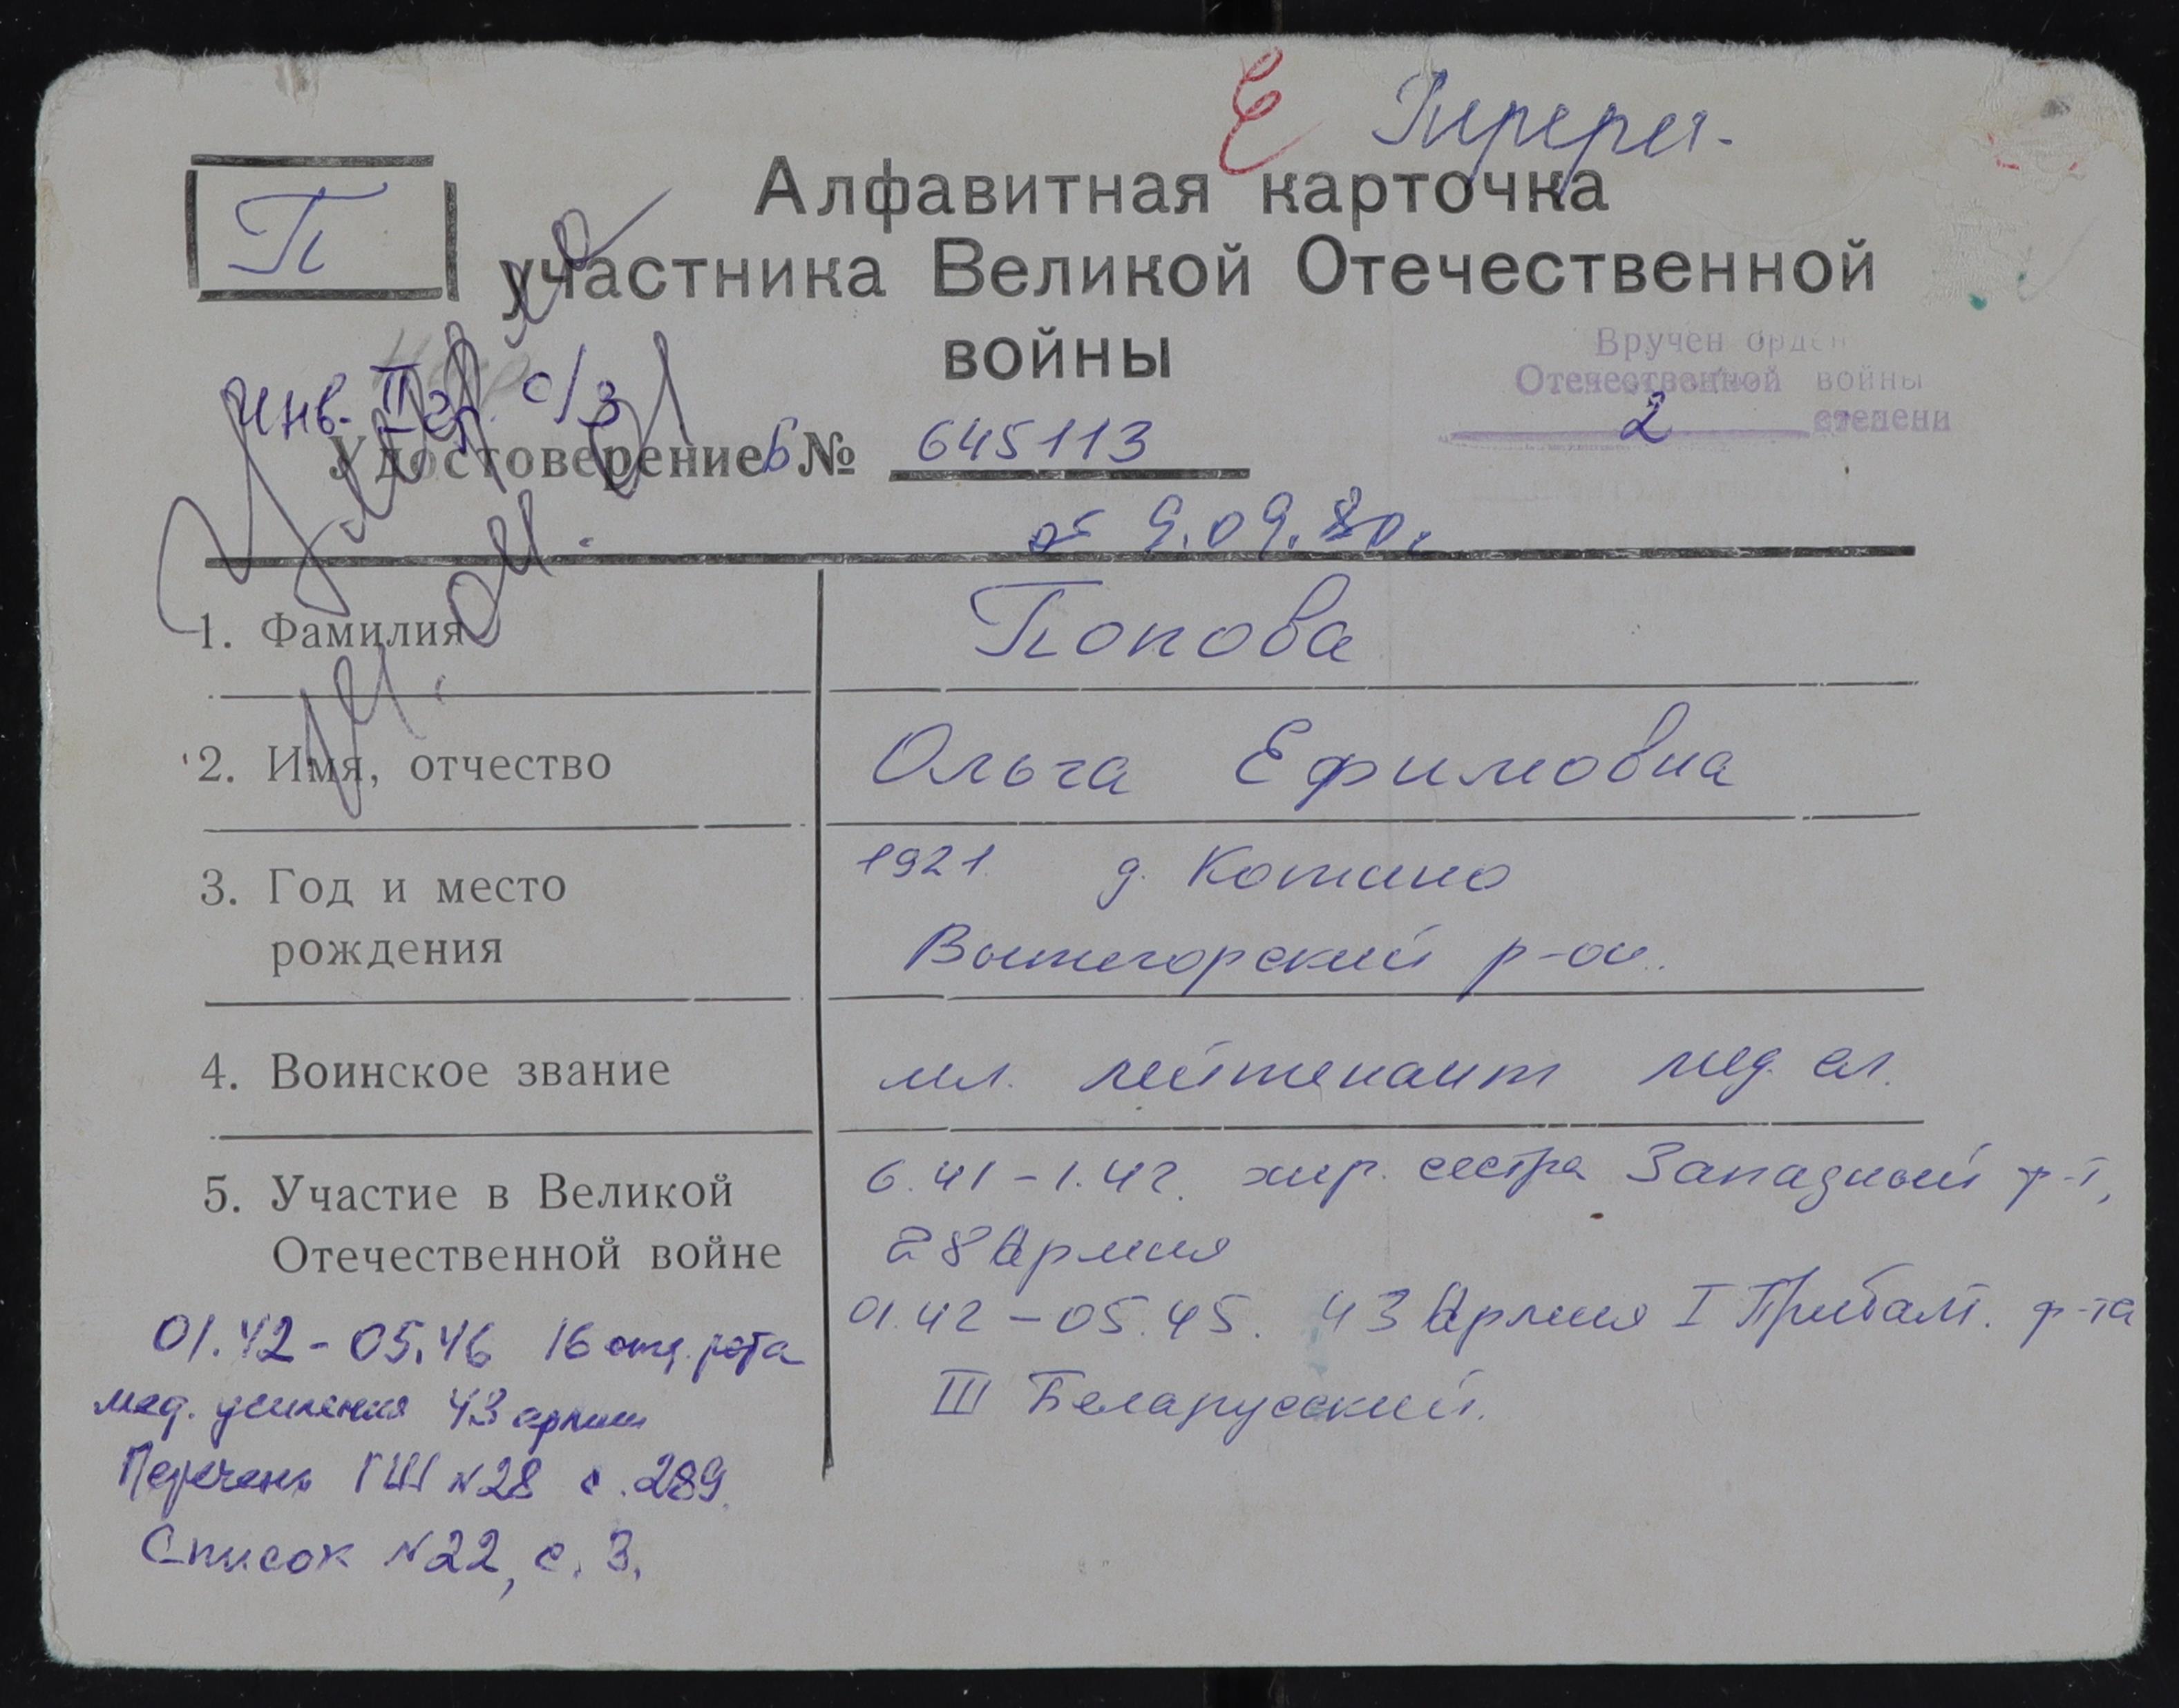 Е Перерег.
П
Алфавитная карточка
участника Великой Отечественной
войны
Вручен орден
Отечественной войны
2 степени
Инв. II гр. с/з
Удостоверение Б № 645113
от 9.09.80г
1. Фамилия Попова
2. Имя, отчество Ольга Ефимовна
3. Год и место 1921. д.
рождения Вытегорский р-он.
4. Воинское звание мл. лейтенант мед. сл.
5. Участие в Великой 6.41-1.42. хир. сестра Западный ф-т,
Отечественной войне 28 Армия
01.42-05.45. 43 Армия I Прибалт. ф-та
III Беларусский.
01.42-05.46 16 отд. рота
мед. усиления 43 армии
Перечень ГШ №28 с. 289.
Список №22, с. 3.